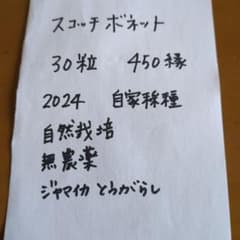 スコッチ ボネット
30粒 450縁
2024 自家秼種
自然栽培
無農薬
ジャマイカ とうがらし